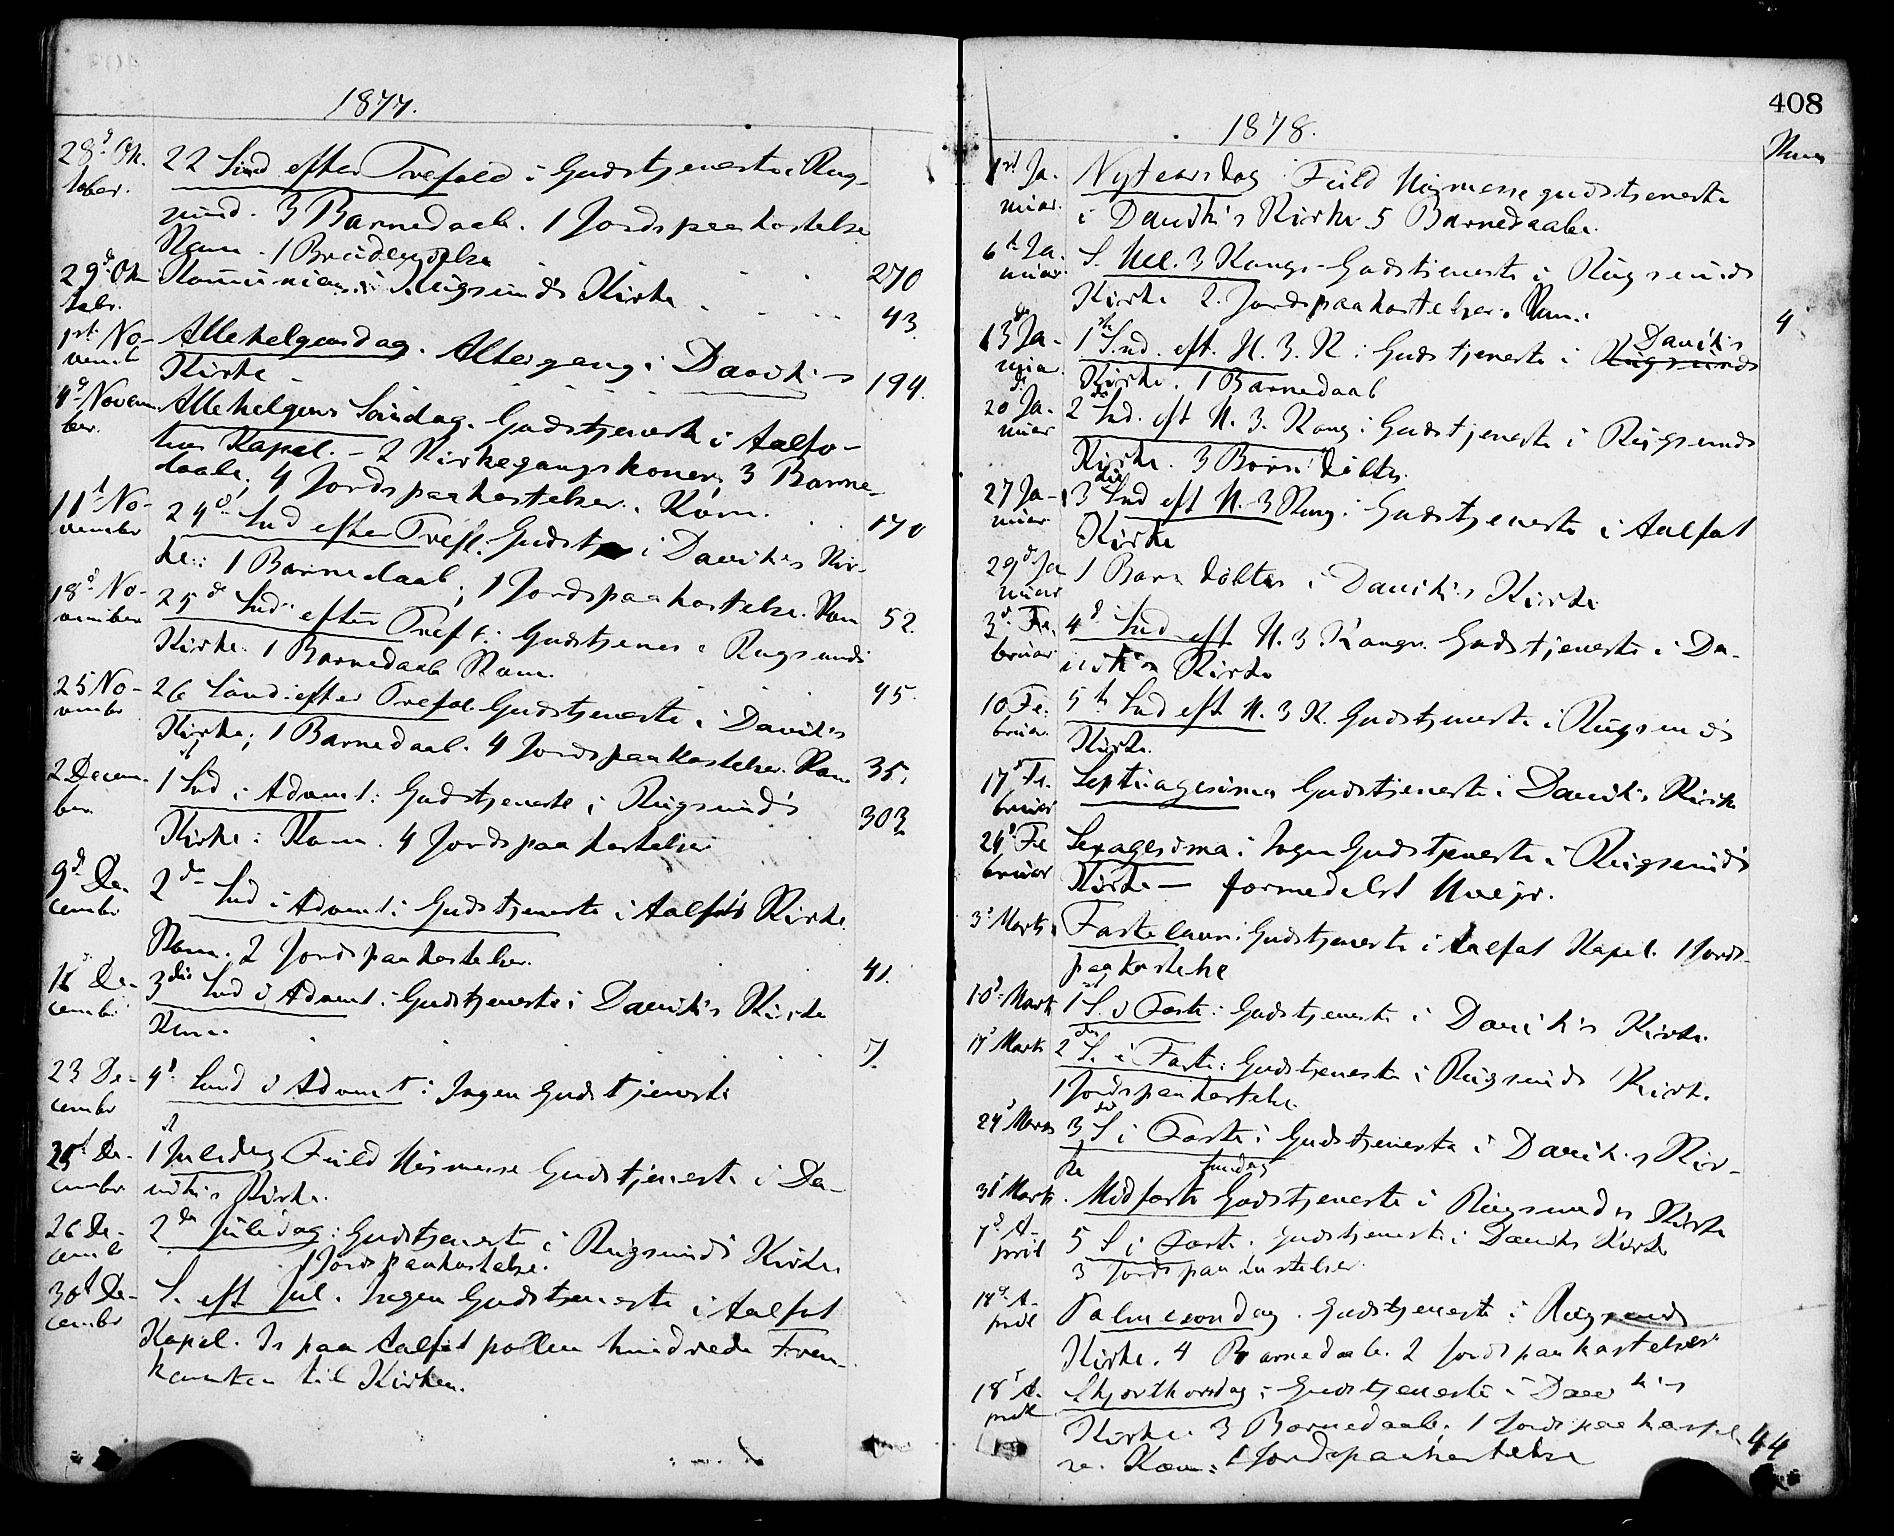 1877.
28d Ok-
tober.
22 Sønd efter Trefold: Gudstjeneste i Rug-
sund. 3 Barnedaab. 1 Jordspaakastelse
Kom. 1 Brudevielse
270
29d Ok
tobr.
Kommunion i Rugsunds Kirke
43
1st No-
vemb
Allehelgensdag. Altergang i Daviks
Kirke
194.
4d Novem
ber.
Allehelgens Søndag. Gudstjeneste i Aalfo-
tens Kapel. - 2 Kirkegangskoner; 3 Barne-
daab; 4 Jordspaakastelser. Kom.
170
11t No-
vember
24d Snd efter Trefl. Gudstj i Daviks Kir-
ke: 1 Barnedaab; 1 Jordspaakastelse. Kom
52.
18d No-
vember
25d Snd efter Tref.: Gudstjenes i Rugsunds
Kirke. 1 Barnedaab Kom.
45.
25 No-
vembr
26 Sønd: efter Trefol. Gudstjeneste i Daviks
Kirke; 1 Barnedaab. 4 Jordspaakastelser. Kom
35.
2 Decem-
ber.
1st Snd i Advent: Gudstjeneste i Rugsund's
Kirke: Kom. 4 Jordspaakastelser
303
9d De-
cembr
2den Snd i Advent: Gudstjeneste i Aalfots Kirke
Kom. 2 Jordspaakastelser.
41.
16d De-
cembr
3die Snd i Advent: Gudstjeneste i Daviks Kirke
Kom.
7.
23 De-
cembr
4d Sønd i Advent: Ingen Gudstjeneste
25d De-
cembr
1st Juledag Fuld Høimesse Gudstjeneste i Da-
viks Kirke.
26 De-
cemb
2den Juledag: Gudstjeneste i Rugsunds Kirke
1 Jordspaakastelse.
30d De-
cembr
S. eft Jul. Ingen Gudstjeneste i Aalfot
Kapel. Is paa Aalfotpollen hindrede Frem-
komsten til Kirken.
408
1878.
1st Ja-
nuar.
Nytaarsdag: Fuld Høimessegudstjeneste
i Davik's Kirke 5 Barnedaabe.
6t Ja-
nuar.
S. Hel. 3 Konge-Gudstjeneste i Rugsunds
Kirke 2. Jordspaakastelser. Kom.
4
13d Ja-
nuar
1ste Snd. eft. H. 3. K: Gudstjeneste i Rugsunds Daviks
Kirke. 1 Barnedaab
20d Ja-
nuar
2d Snd. eft H. 3. Kong: Gudstjeneste i Rugsunds
Kirke. 3 Børn døbte.
27 Ja-
nuar
3die Snd eft H. 3 Kong: Gudstjeneste i Aalfot
Kirke
29d Ja
nuar
1 Barn døbtes i Davik's Kirke
3d Fe-
bruar
4d Snd eft H. 3 Konger. Gudstjeneste i Da-
viks Kirke
10 Fe-
bruar.
5t Snd eft H. 3 K. Gudstjeneste i Rugsunds
Kirke.
17d Fe-
bruar
Septuagesima Gudstjeneste i Davik's Kirke
24d Fe
bruar
Sexagesima: Ingen Gudstjeneste i Rugsunds
Kirke — formedelst Uvejr.
3d Marts
Fastelavn: Gudstjeneste i Aalfot Kapel. 1 Jords-
paakastelse
10d Mart
1 S. i Faste: Gudstjeneste i Davik's Kirke.
17d Marts
2den S. i Faste: Gudstjeneste i Rugsunds Kirke.
1 Jordspaakastelse.
24d Marts
3die S i Faste: Gudstjeneste i Davik's Kir-
ke
31 Marts
Midfaste Søndag Gudstjeneste i Rugsunds Kirke
7d A-
pril
5 S i Faste. Gudstjeneste i Daviks Kirke
3 Jordspaakastelser
14d A-
pril
Palmesøndag. Gudstjeneste i Rugsunds
Kirke. 4 Barnedaab. 2 Jordspaakastelser
18d A-
pril
Skjærthorsdag: Gudstjeneste i Davik's
Kirke. 3 Barnedaab. 1 Jordspaakastel
se. Kom: 1 Jordspaakastelse
44